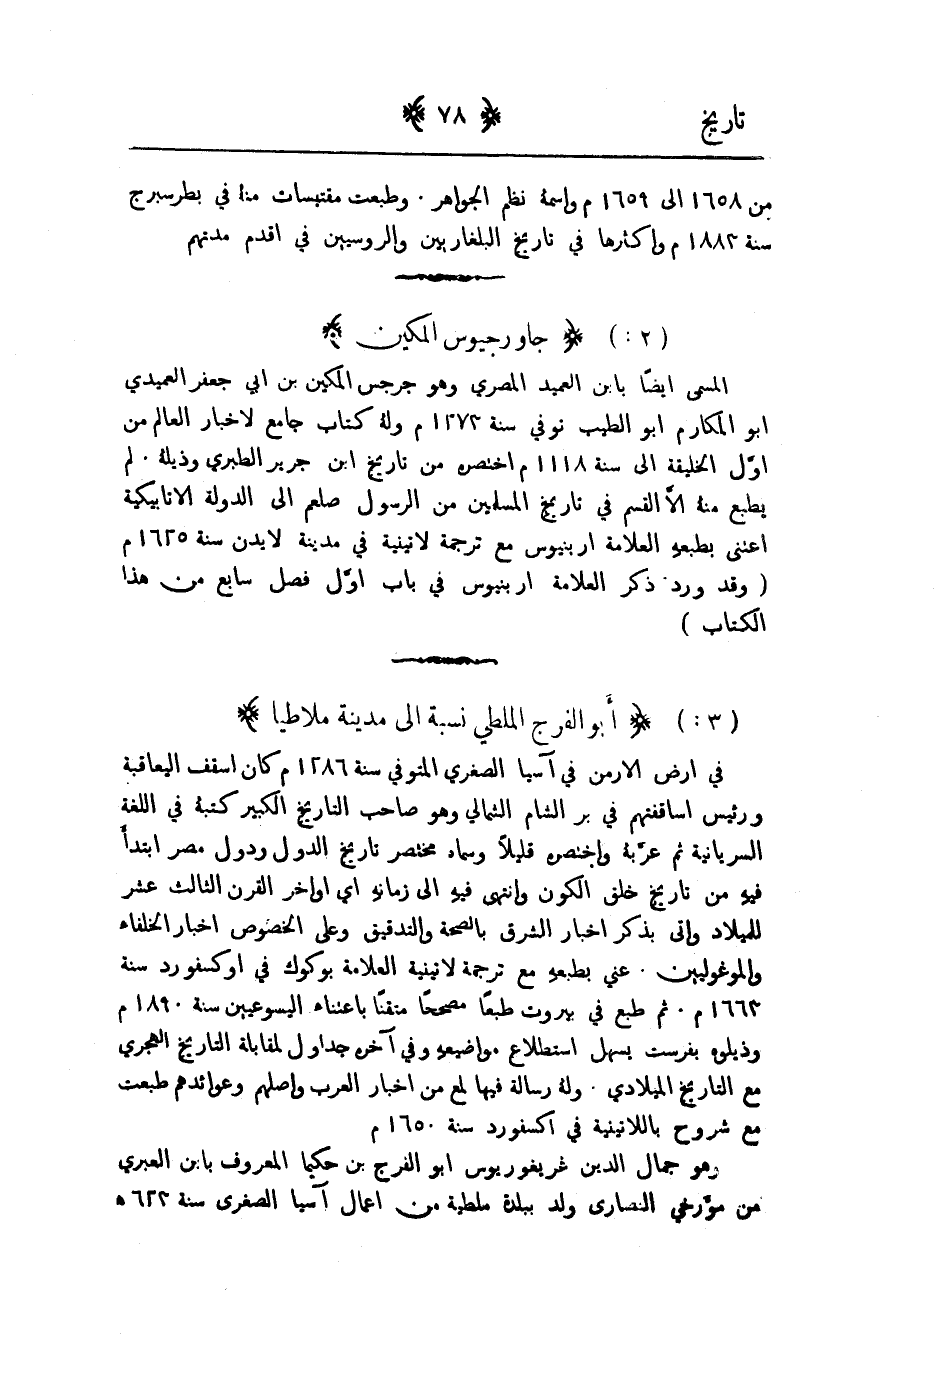 تاريخ ﴿ ٧٨ ﴾
من ١٦٥٨ الى ١٦٥٩ م واسمهُ نظم الجواهر ٠ وطبعت مقتبسات منهُ في بطرسبرج
سنة ١٨٨٣ م واكثرها في تاريخ البلغاريين والروسيين في اقدم مدتهم
( ٢ : ) ﴿ جاورجيوس المكين ﴾
المسمى ايضًا بابن العميد المصري وهو جرجس المكين بن ابي جعفر العميدي
ابو المكارم ابو الطيب توفي سنة ١٢٧٣ م ولهُ كتاب جامع لاخبار العالم من
اوَّل الخليقة الى سنة ١١١٨ م اختصره من تاريخ ابن جرير الطبري وذيلهُ ٠ لم
يطبع منهُ الاَّ القسم في تاريخ المسلمين من الرسول صلعم الى الدولة الاتابيكية
اعتنى بطبعهِ العلامة اربنيوس مع ترجمة لاتينية في مدينة لايدن سنة ١٦٢٥ م
( وقد ورد ذكر العلامة اربنيوس في باب اوَّل فصل سابع من هذا
الكتاب )
( ٣ : ) ﴿ أبو الفرج الملطي نسبة الى مدينة ملاطيا ﴾
في ارض الارمن في آسيا الصغرى المتوفي سنة ١٢٨٦ م كان اسقف اليعاقبة
ورئيس اساقفتهم في بر الشام الشمالي وهو صاحب التاريخ الكبير كتبهُ في اللغة
السريانية ثم عرَّبهُ واختصره قليلاً وسماه مختصر تاريخ الدول ودول مصر ابتدأ
فيهِ من تاريخ خلق الكون وانتهى فيهِ الى زمانهِ اي اواخر القرن الثالث عشر
للميلاد واتى بذكر اخبار الشرق بالصحة والتدقيق وعلى الخصوص اخبار الخلفاء
والموغوليين ٠ عني بطبعهِ مع ترجمة لاتينية العلامة بوكوك في اوكسفورد سنة
١٦٦٣ م ٠ ثم طبع في بيروت طبعًا مصححًا متقنًا باعتناء اليسوعيين سنة ١٨٩٠ م
وذيلوه بفرست يسهل استطلاع مواضيعهِ وفي آخره جداول لمقابلة التاريخ الهجري
مع التاريخ الميلادي ٠ ولهُ رسالة فيها لمع من اخبار العرب واصلهم وعوائدهم طبعت
مع شروح باللاتينية في اكسفورد سنة ١٦٥٠ م
وهو جمال الدين غريغوريوس ابو الفرج بن حكيما المعروف بابن العبري
من مؤَرخي النصارى ولد ببلدة ملطية من اعمال آسيا الصغرى سنة ٦٢٣ ه